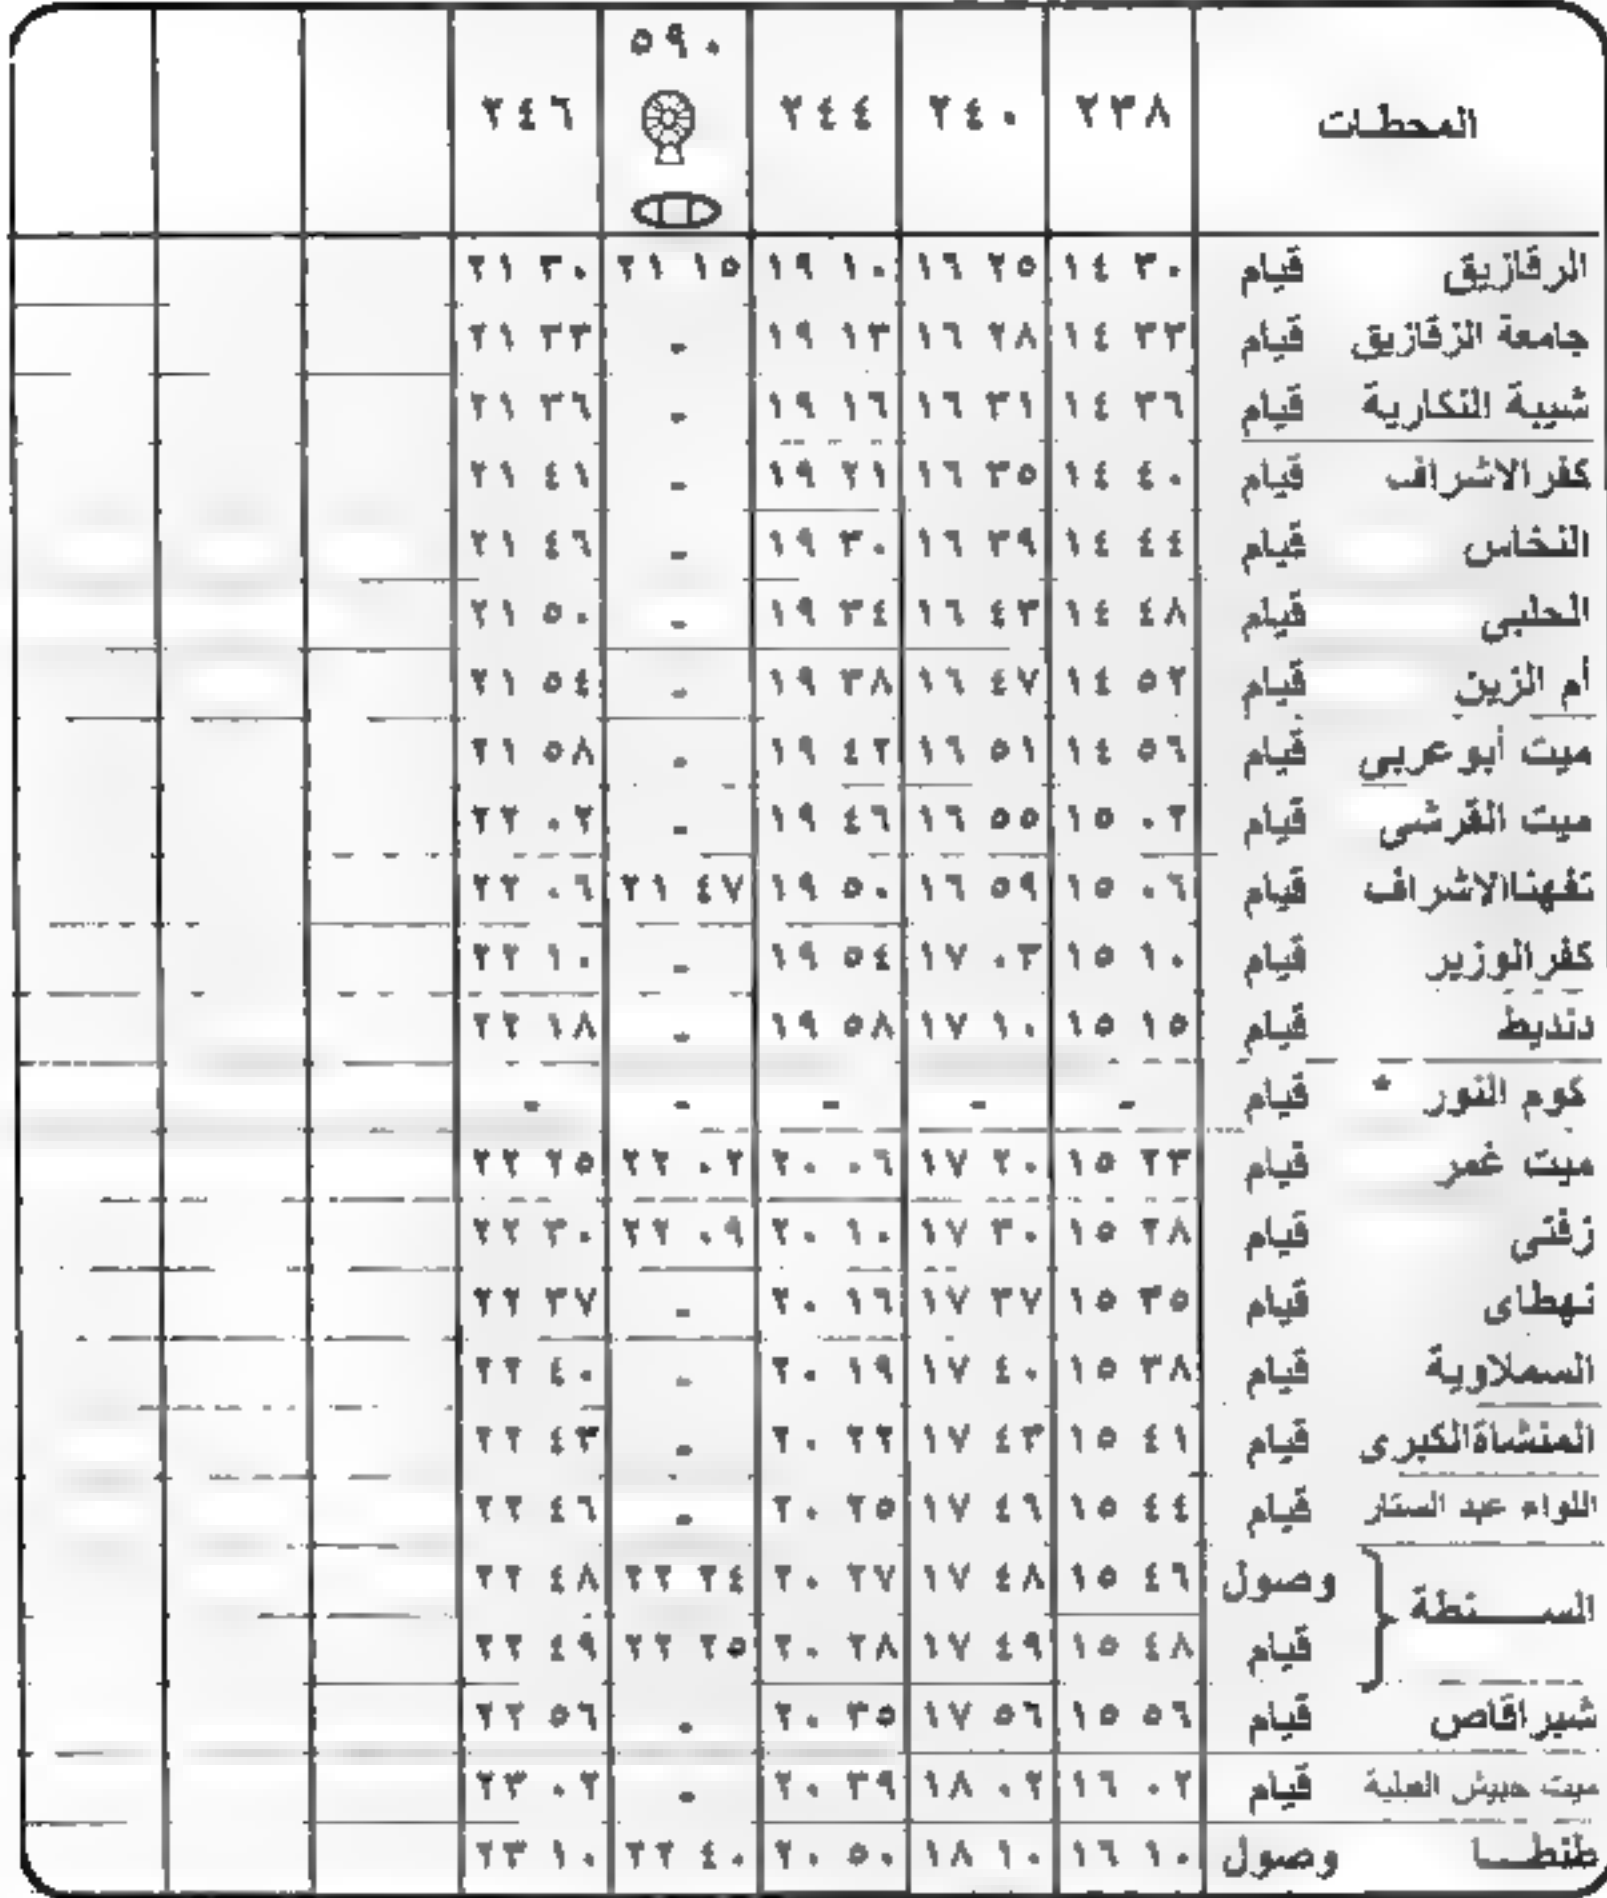 المحطات ٢٣٨ ٢٤٠ ٢٤٤ ٥٩٠ ٢٤٦
الزقازيق قيام ١٤ ٣٠ ١٦ ٢٥ ١٩ ١٠ ٢١ ١٥ ٢١ ٣٠
جامعة الزقازيق قيام ١٤ ٣٣ ١٦ ٢٨ ١٩ ١٣ - ٢١ ٣٣
شيبة النكارية قيام ١٤ ٣٦ ١٦ ٣١ ١٩ ١٦ - ٢١ ٣٦
كفرالاشراف قيام ١٤ ٤٠ ١٦ ٣٥ ١٩ ٢١ - ٢١ ٤١
النخاس قيام ١٤ ٤٤ ١٦ ٣٩ ١٩ ٣٠ - ٢١ ٤٦
الحلبى قيام ١٤ ٤٨ ١٦ ٤٣ ١٩ ٣٤ - ٢١ ٥٠
أم الزين قيام ١٤ ٥٢ ١٦ ٤٧ ١٩ ٣٨ - ٢١ ٥٤
ميت أبوعربى قيام ١٤ ٥٦ ١٦ ٥١ ١٩ ٤٢ - ٢١ ٥٨
ميت القرشى قيام ١٥ ٠٢ ١٦ ٥٥ ١٩ ٤٦ - ٢٢ ٠٢
تفهناالاشراف قيام ١٥ ٠٦ ١٦ ٥٩ ١٩ ٥٠ ٢١ ٤٧ ٢٢ ٠٦
كفرالوزير قيام ١٥ ١٠ ١٧ ٠٣ ١٩ ٥٤ - ٢٢ ١٠
دنديط قيام ١٥ ١٥ ١٧ ١٠ ١٩ ٥٨ - ٢٢ ١٨
كوم النور * قيام - - - - -
ميت غمر قيام ١٥ ٢٣ ١٧ ٢٠ ٢٠ ٠٦ ٢٢ ٠٢ ٢٢ ٢٥
زفتى قيام ١٥ ٢٨ ١٧ ٣٠ ٢٠ ١٠ ٢٢ ٠٩ ٢٢ ٣٠
نهطاى قيام ١٥ ٣٥ ١٧ ٣٧ ٢٠ ١٦ - ٢٢ ٣٧
السملاوية قيام ١٥ ٣٨ ١٧ ٤٠ ٢٠ ١٩ - ٢٢ ٤٠
المنشاةالكبرى قيام ١٥ ٤١ ١٧ ٤٣ ٢٠ ٢٢ - ٢٢ ٤٣
اللواء عبد الستار قيام ١٥ ٤٤ ١٧ ٤٦ ٢٠ ٢٥ - ٢٢ ٤٦
السنطة وصول ١٥ ٤٦ ١٧ ٤٨ ٢٠ ٢٧ ٢٢ ٢٤ ٢٢ ٤٨
قيام ١٥ ٤٨ ١٧ ٤٩ ٢٠ ٢٨ ٢٢ ٢٥ ٢٢ ٤٩
شبراقاص قيام ١٥ ٥٦ ١٧ ٥٦ ٢٠ ٣٥ - ٢٢ ٥٦
ميت حبيش قيام ١٦ ٠٢ ١٨ ٠٢ ٢٠ ٣٩ - ٢٣ ٠٢
طنطا وصول ١٦ ١٠ ١٨ ١٠ ٢٠ ٥٠ ٢٢ ٤٠ ٢٣ ١٠